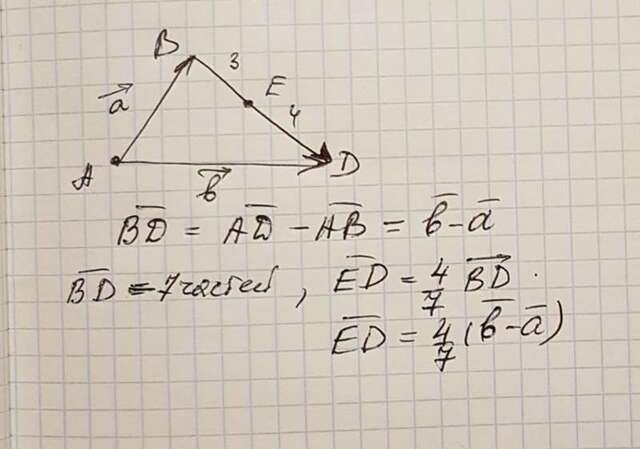 B 3 E
a⃗ 4
A b⃗ D
B̅D̅ = A̅D̅ - A̅B̅ = b̅ - a̅
B̅D̅ - 7 частей , E̅D̅ = 4/7 B̅D̅ .
E̅D̅ = 4/7 (b̅ - a̅)